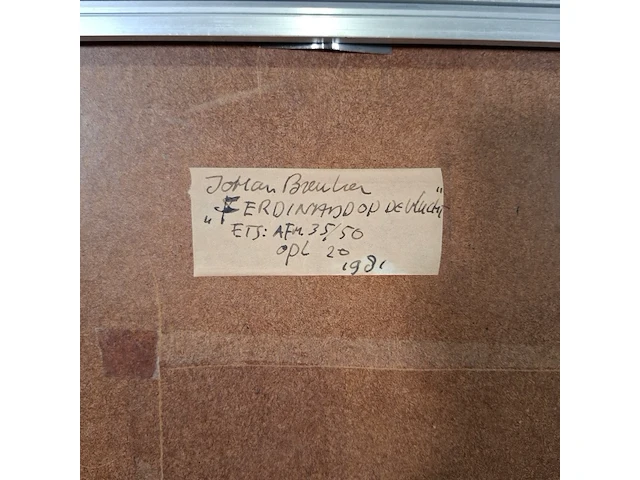 Johan Breuker
"FERDINAND OP DE VLUCHT"
ETS: AFM. 35/50
opl 20
1981